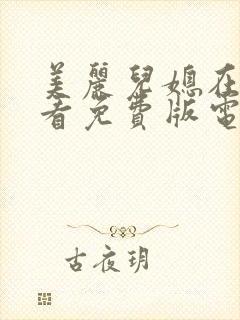 美麗兒媳在
看免費版電
古夜玥